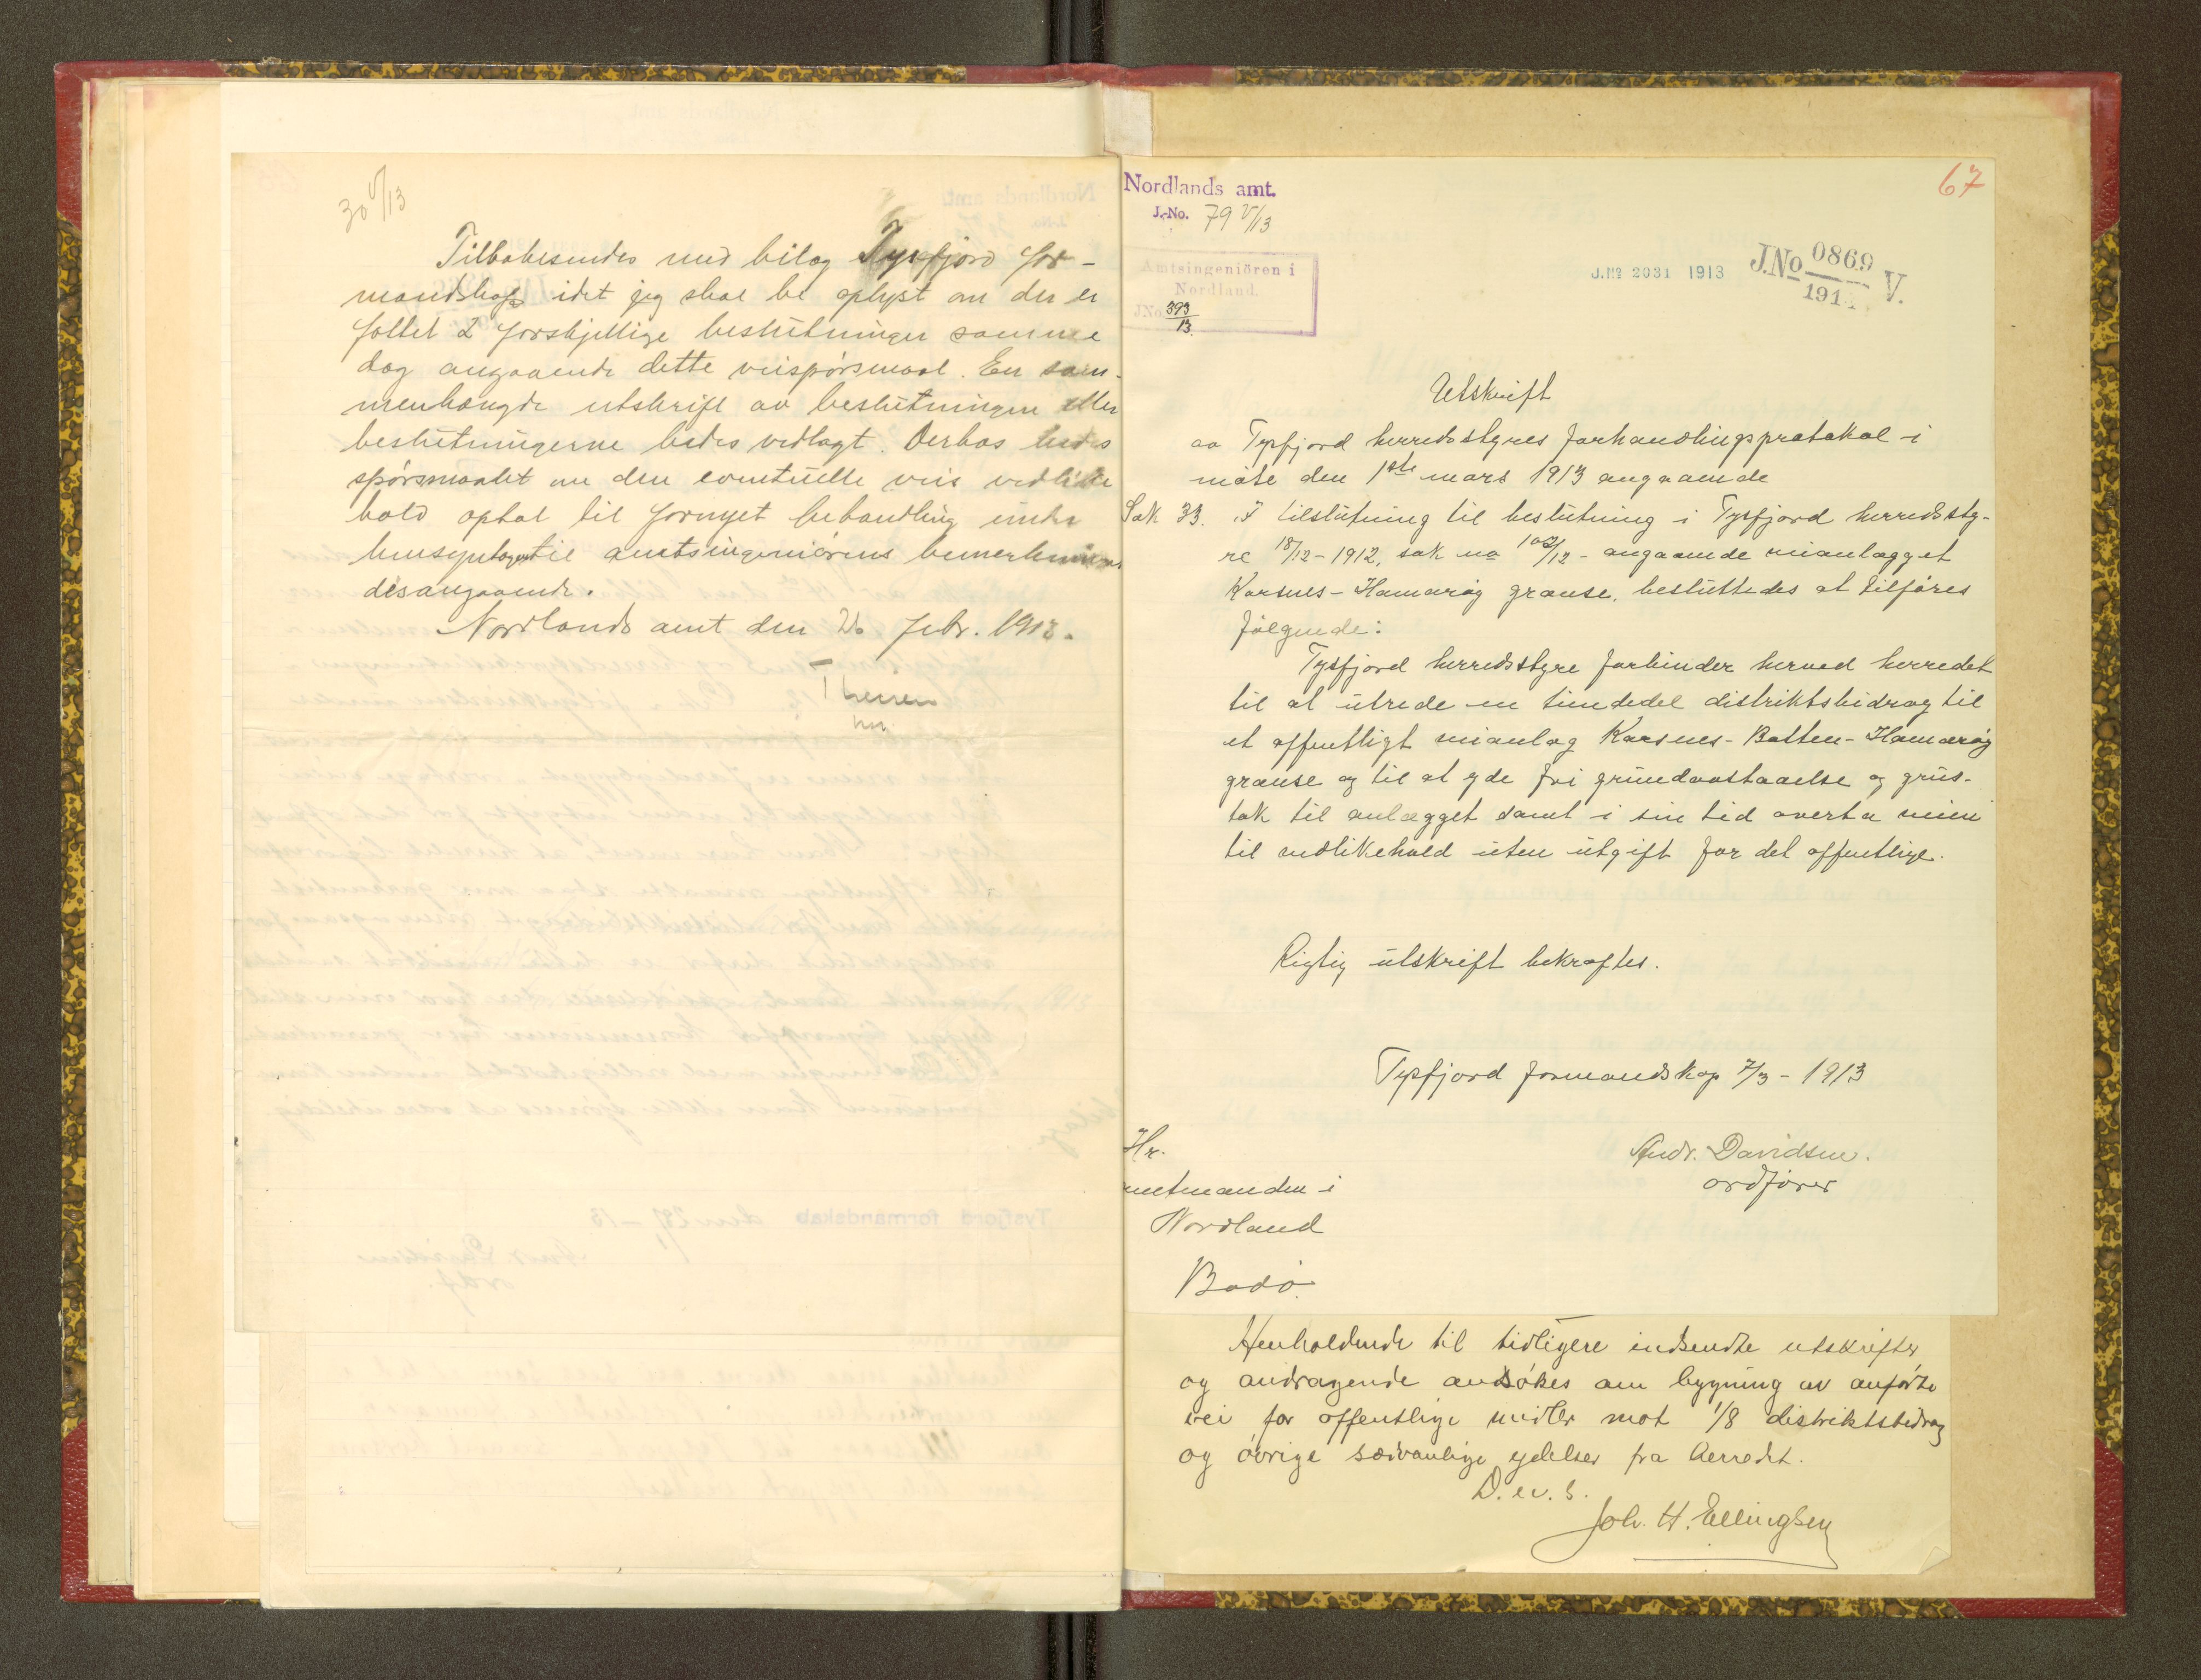 30 V/13
Tilbakesendes med bilag Tysfjord for-
mandskap idet jeg skal be oplyst om der er
fattet 2 forskjellige beslutninger samme
dag angaaende dette veispörsmaal. En sam-
menhængde utskrift av beslutningen eller
beslutningerne bedes vedlagt. Derhos bedes
spörsmaalet om den eventuelle veis vedlike
hold optat til fornyet behandling under
hensyntagen til amtsingeniörens bemerkninger
desangaaende.
Nordlands amt den 26 febr. 1913.
Nordlands amt.
J.-No. 79 V/13
67
Amtsingeniören i
Nordland.
JNo 393/13
J.No 2031 1913
J.No 0869/191 V.
Utskrift
av Tysfjord herredsstyres forhandlingsprotokol i
möte den 1ste mars 1913 angaaende
Sak 33. I tilslutning til beslutning i Tysfjord herredssty-
re 18/12-1912, sak no 102/12 - angaaende veianlægget
Korsnes-Hamaröy grænse, besluttedes at tilföres
fölgende:
Tysfjord herredsstyre forbinder herved herredet
til at utrede en tiendedel distriktsbidrag til
et offentligt veianlæg Korsnes-Botten-Hamaröy
grænse og til at yde fri grundavstaaelse og grus-
tak til anlægget samt i sin tid overta veien
til vedlikehold uten utgift for det offentlige.
Rigtig utskrift bekræftes.
Tysfjord formandskap 7/3-1913
Andr. Davidsen.
ordförer
Hr.
amtmanden i
Nordland
Bodö.
Henholdende til tidligere indsendte utskrifter
og andragende ansökes om bygning av anförte
vei for offentlige midler mot 1/8 distriktsbidrag
og övrige sædvanlige ydelser fra herredet.
D. u. s.
Joh. H. Ellingsen